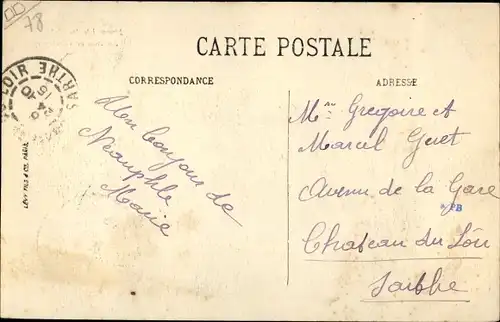 78
CARTE POSTALE
CORRESPONDANCE
ADRESSE
LOIR
SARTHE
Mon bonjour de
Neauphle
Marie
Grégoire et
Marcel
Avenue de la Gare
Chateau du Loir
Sarthe